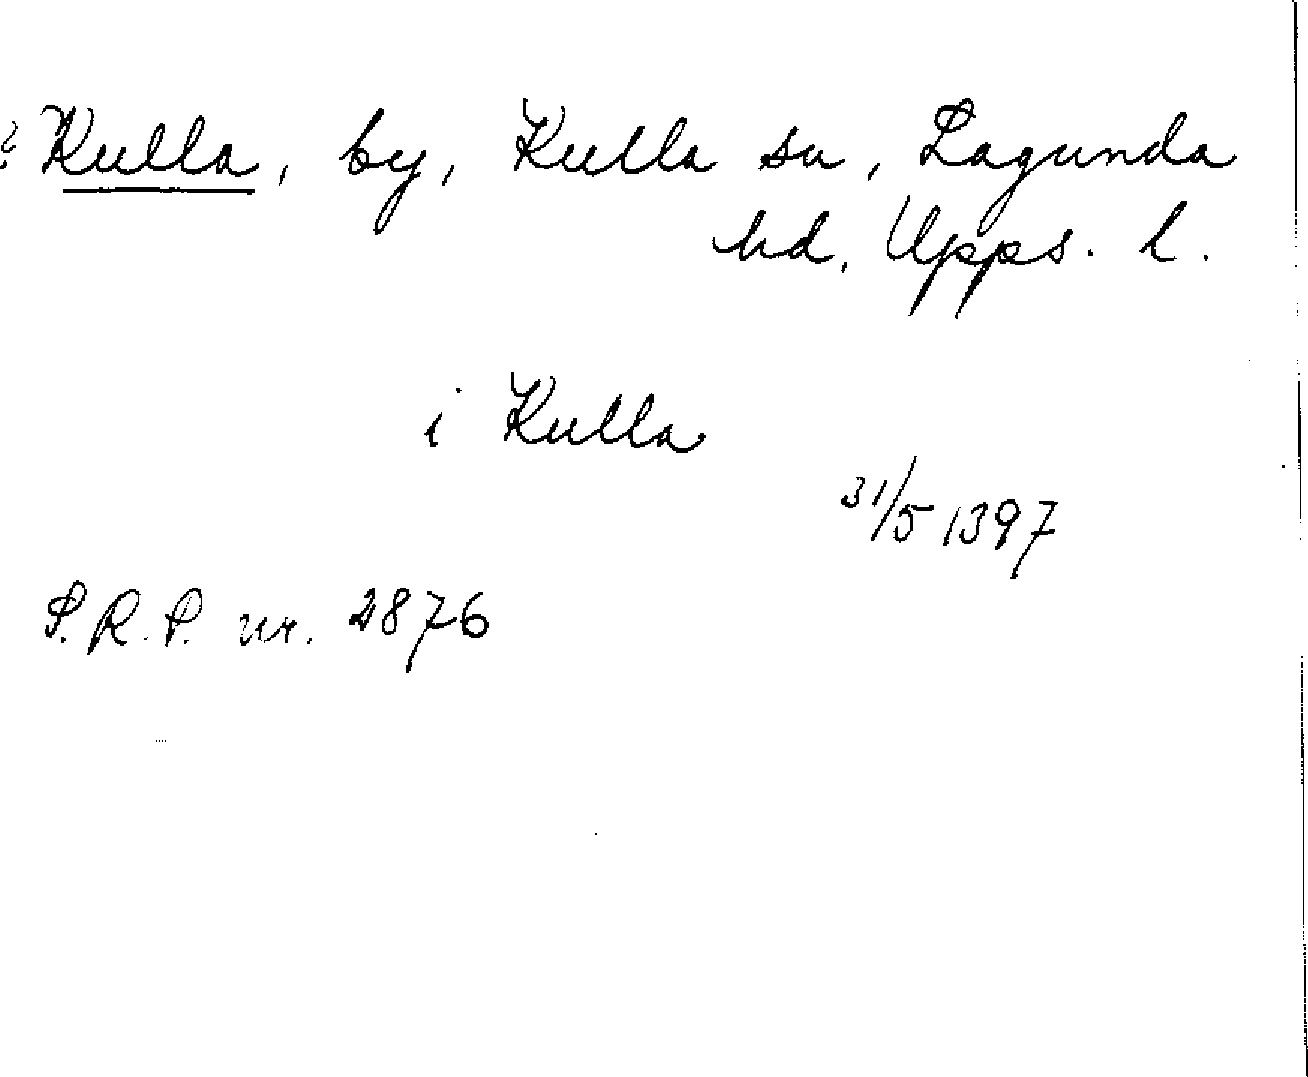 ? Kulla, by, Kulla sn, Lagunda
hd, Upps. l.
i Kulla
31/5 1397
S.R.P. nr. 2876